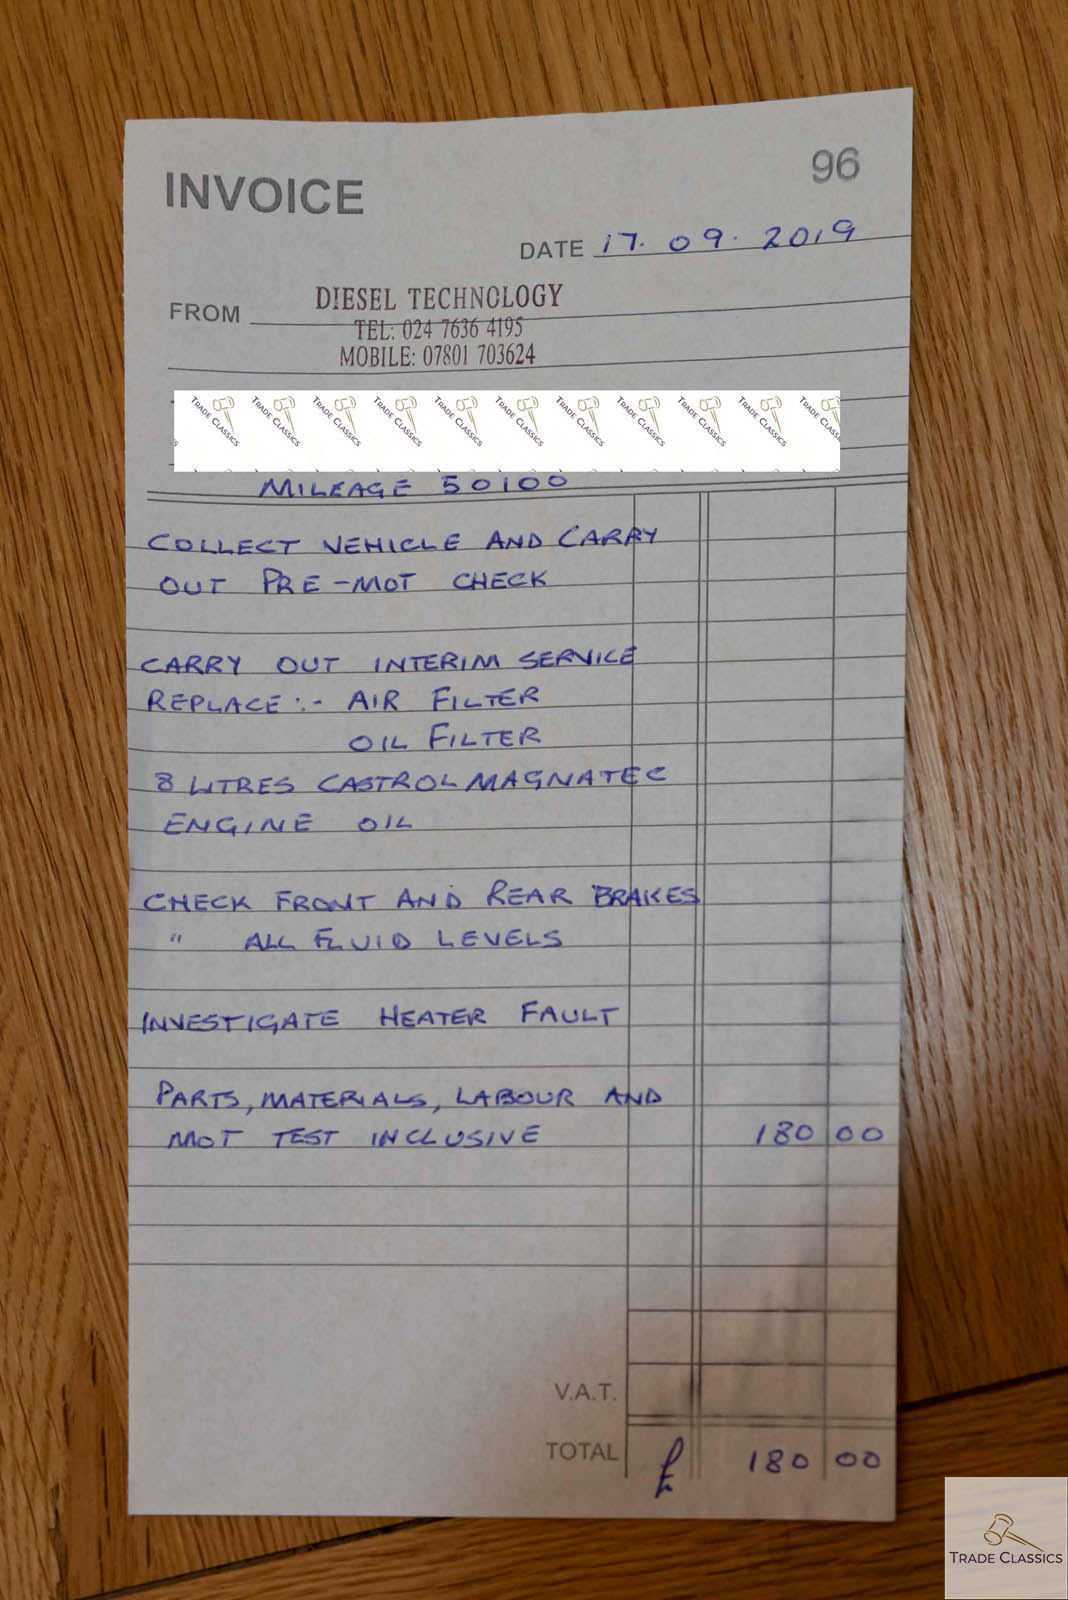 INVOICE
96
DATE 17.09.2019
FROM
DIESEL TECHNOLOGY
TEL: 024 7636 4195
MOBILE: 07801 703624
TRADE CLASSICS TRADE CLASSICS TRADE CLASSICS TRADE CLASSICS TRADE CLASSICS TRADE CLASSICS TRADE CLASSICS TRADE CLASSICS TRADE CLASSICS TRADE CLASSICS TRADE CLASSICS
MILEAGE 50100
COLLECT VEHICLE AND CARRY
OUT PRE-MOT CHECK
CARRY OUT INTERIM SERVICE
REPLACE:- AIR FILTER
OIL FILTER
8 LITRES CASTROL MAGNATEC
ENGINE OIL
CHECK FRONT AND REAR BRAKES
" ALL FLUID LEVELS
INVESTIGATE HEATER FAULT
PARTS, MATERIALS, LABOUR AND
MOT TEST INCLUSIVE 180 00
V.A.T.
TOTAL £ 180 00
TRADE CLASSICS